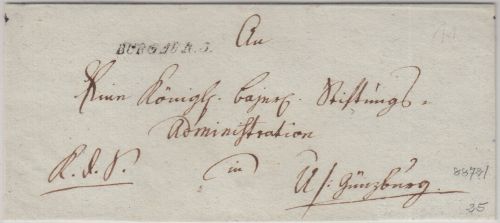 An
BURGAU.R.3.
Eine Königl. bajer. Stiftungs-
Administration
R. d. S. in
U/: Günzburg.
8878/
25